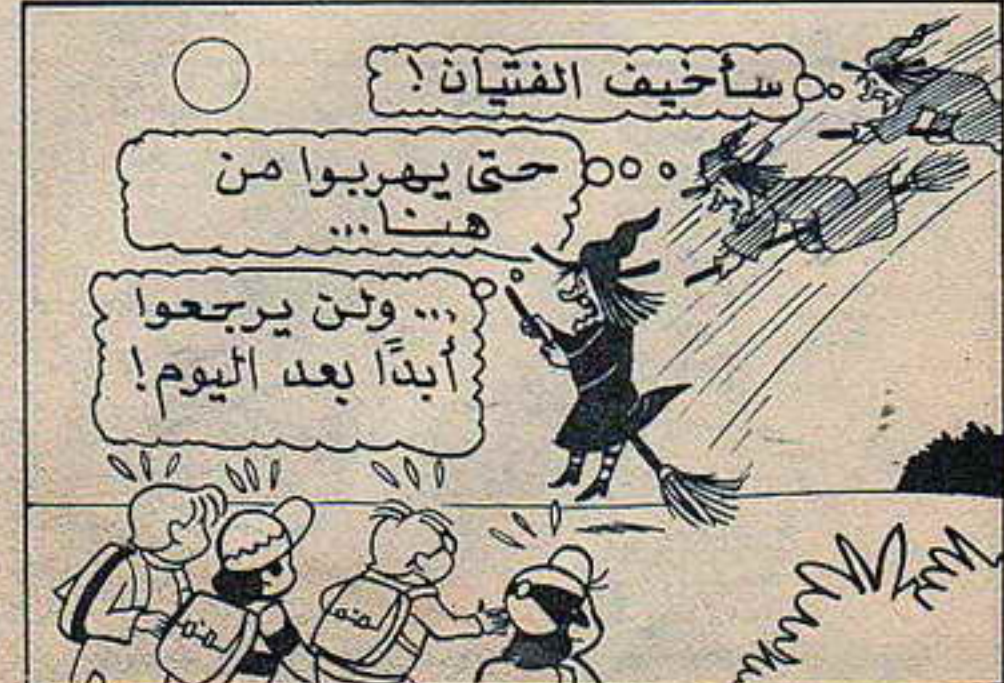 سأخيف الفتيان!
حتى يهربوا من
هنا...
... ولن يرجعوا
أبدًا بعد اليوم!